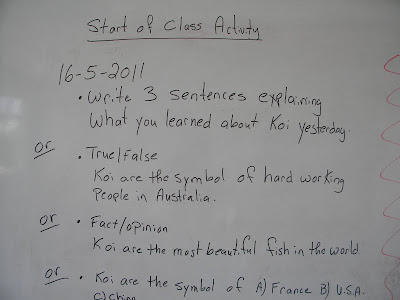 Start of Class Activity
16-5-2011
• Write 3 sentences explaining
What you learned about Koi yesterday.
or • True/False
Koi are the symbol of hard working
People in Australia.
or • Fact/opinion
Koi are the most beautiful fish in the world.
or • Koi are the symbol of A) France B) U.S.A.
C) China